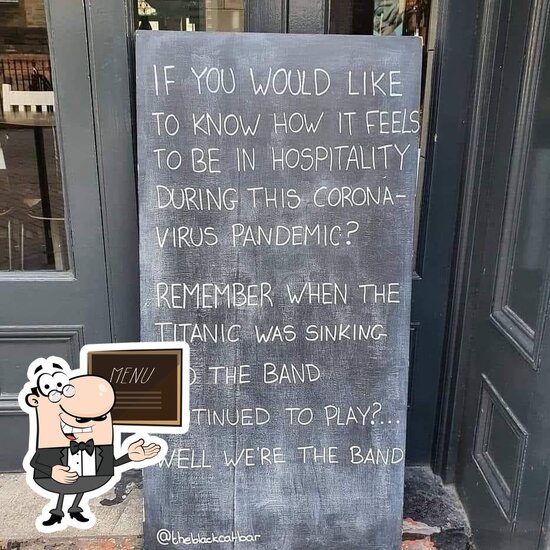 IF YOU WOULD LIKE
TO KNOW HOW IT FEELS
TO BE IN HOSPITALITY
DURING THIS CORONA-
VIRUS PANDEMIC?
REMEMBER WHEN THE
TITANIC WAS SINKING
THE BAND
TO PLAY?...
WELL WE'RE THE BAND
@theblackcatbar
MENU